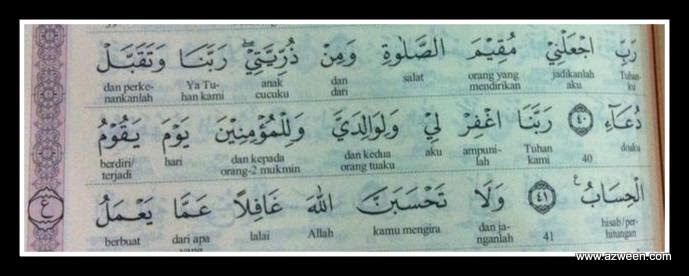 رَبِّ اجْعَلْنِيْ مُقِيْمَ الصَّلٰوةِ وَمِنْ ذُرِّيَّتِيْۖ رَبَّنَا وَتَقَبَّلْ
dan perke- Ya Tu- anak dan salat orang yang jadikanlah Tuhan-
nankanlah han kami cucuku dari mendirikan aku ku
دُعَاۤءِ ٤٠ رَبَّنَا اغْفِرْ لِيْ وَلِوَالِدَيَّ وَلِلْمُؤْمِنِيْنَ يَوْمَ يَقُوْمُ
berdiri/ hari dan kepada dan kedua aku ampuni- Tuhan doaku
terjadi orang-2 mukmin orang tuaku lah kami 40
ع الْحِسَابُࣖ ٤١ وَلَا تَحْسَبَنَّ اللّٰهَ غَافِلًا عَمَّا يَعْمَلُ
berbuat dari apa lalai Allah kamu mengira dan ja- hisab/per-
yang nganlah 41 hitungan
www.azween.com